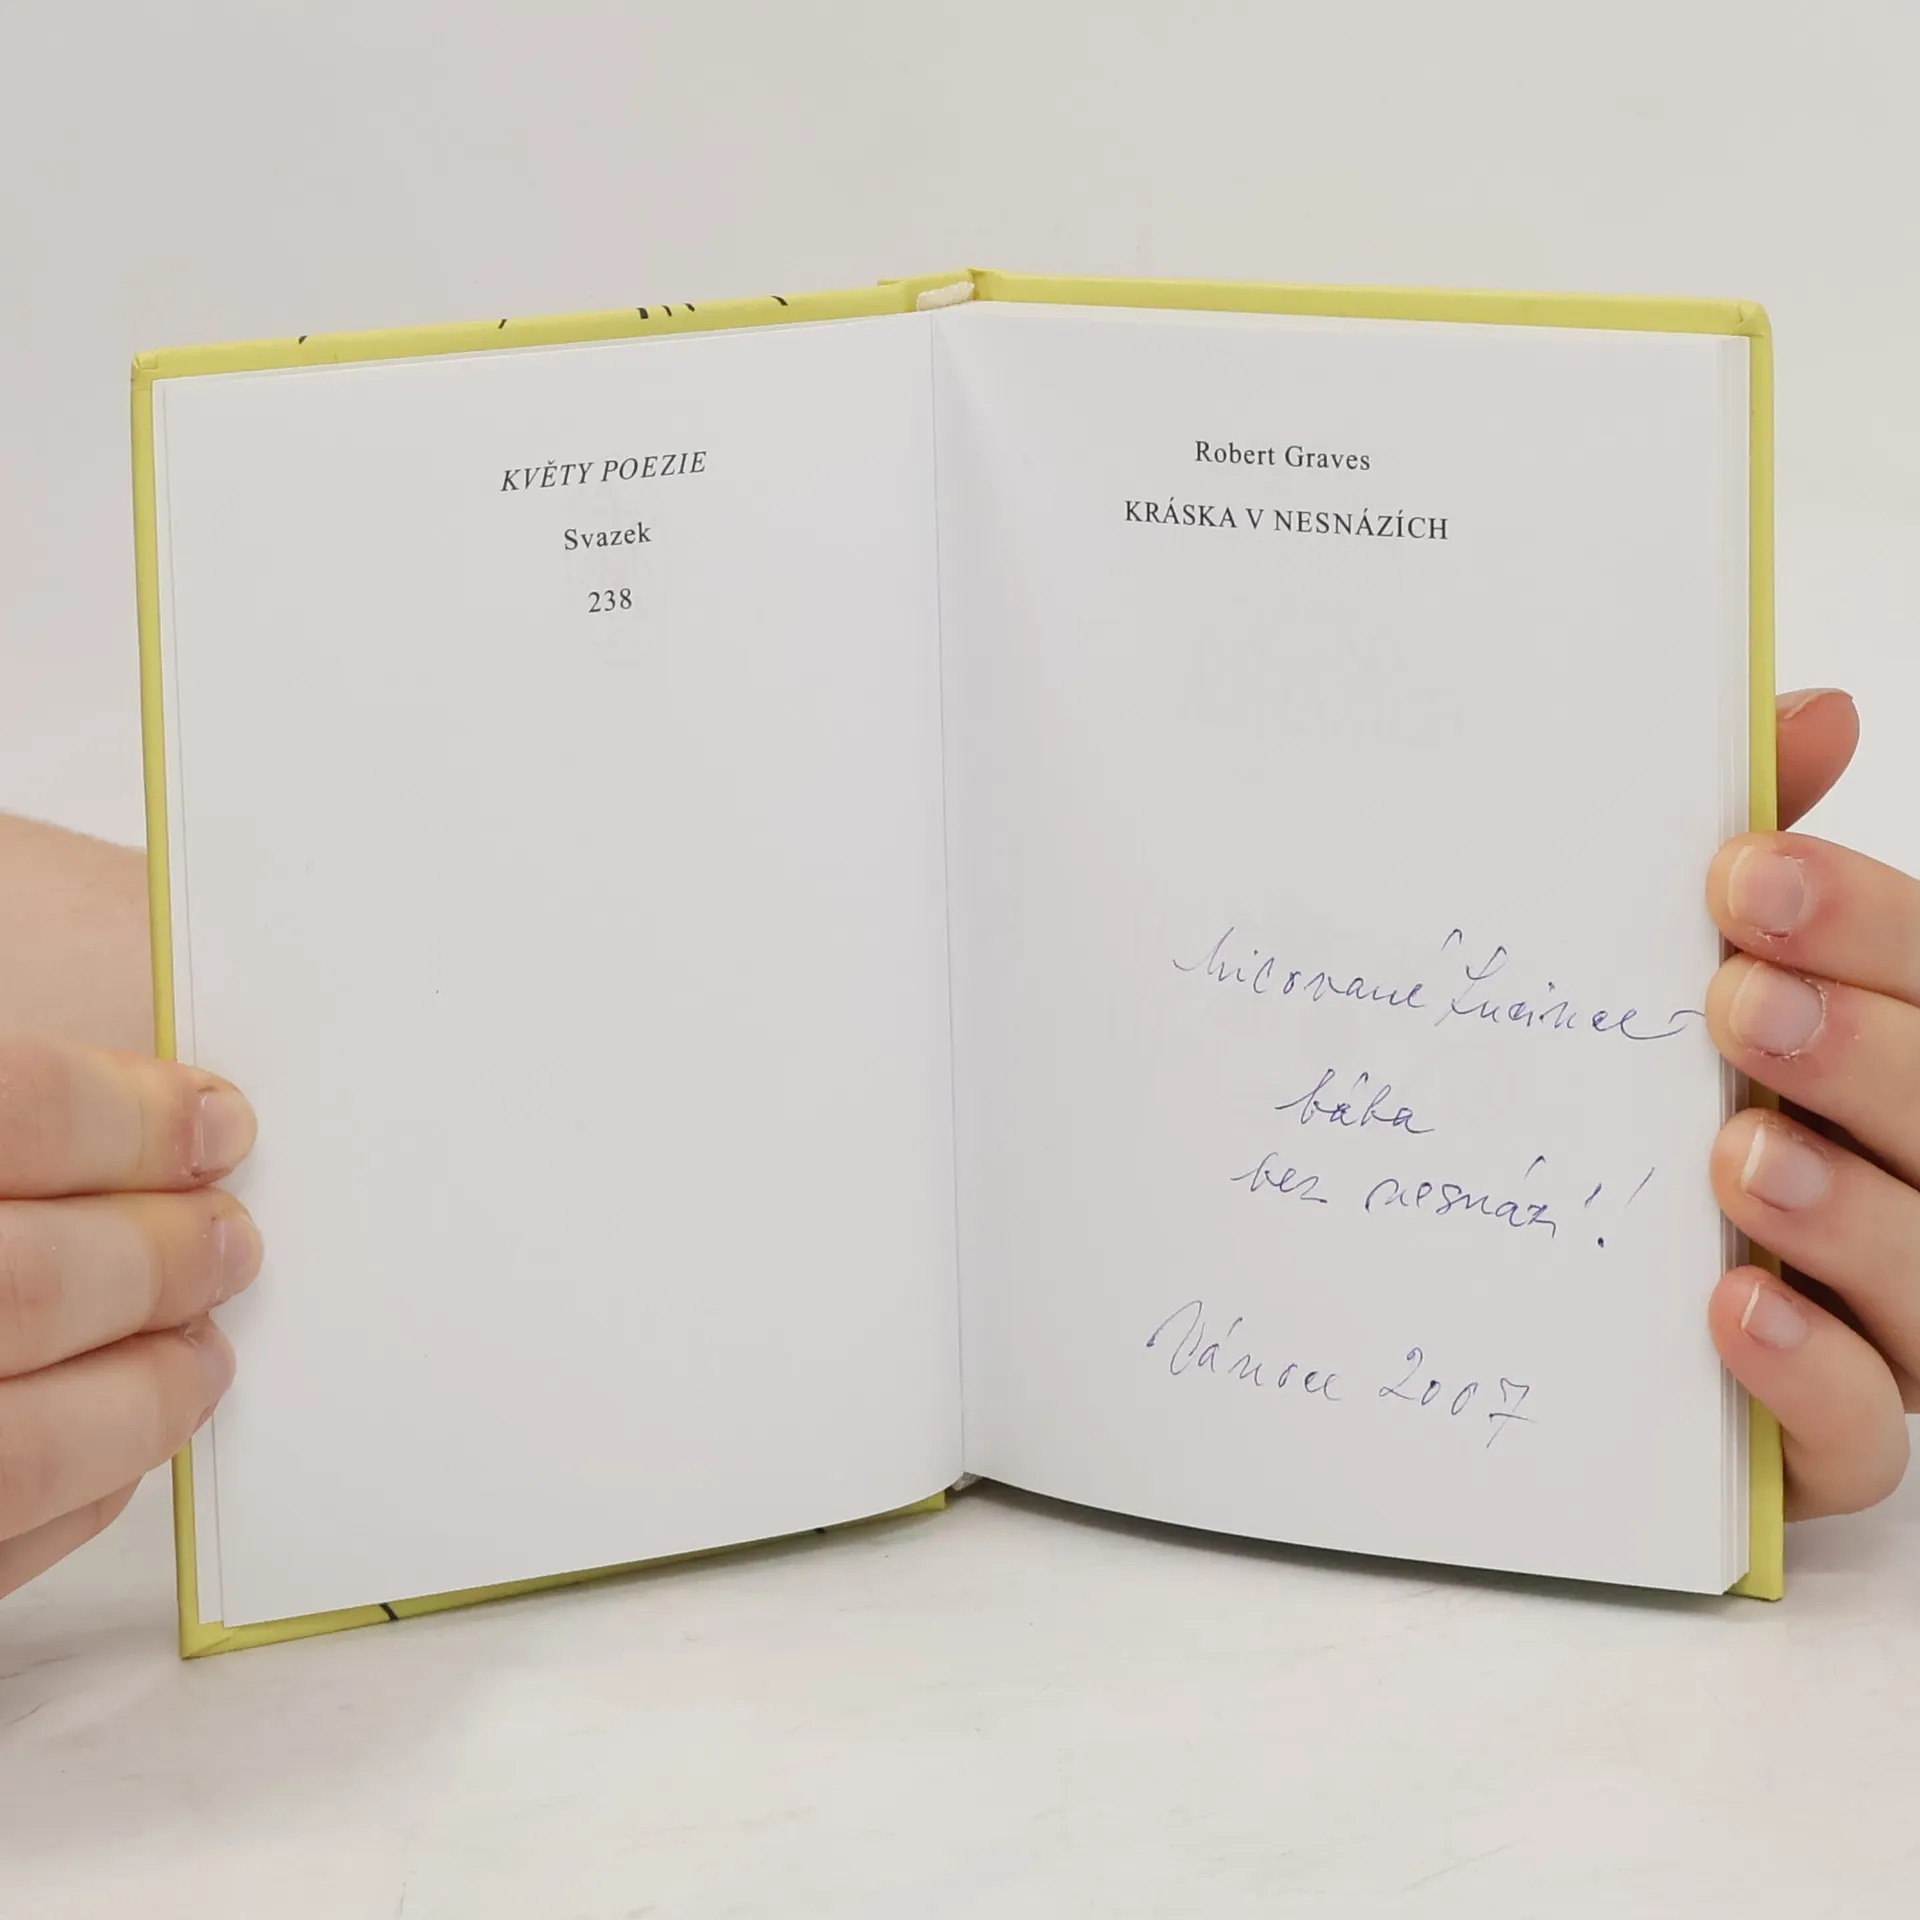 KVĚTY POEZIE
Svazek
238
Robert Graves
KRÁSKA V NESNÁZÍCH
Milované Lucince
bába
bez nesnází!
Vánoce 2007